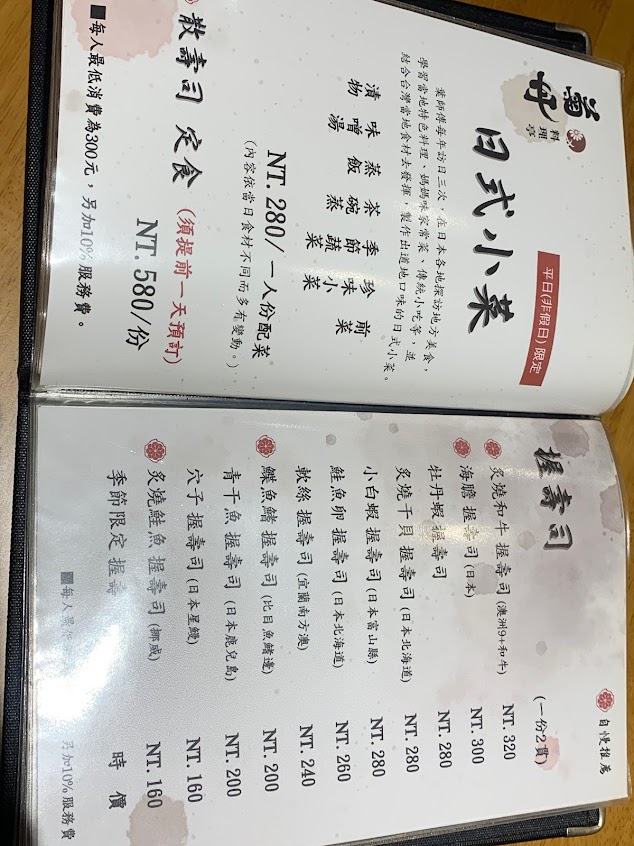 菊
料理亭
平日(非假日) 限定
日式小菜
葉師傅每年訪日三次，在日本各地探訪地方美食，
學習當地特色料理、媽媽味家常菜、傳統小吃等，並
結合台灣當地食材去發揮，製作出道地口味的日式小菜。
前菜
珍味小菜
季節蔬菜
茶碗蒸
蒸飯
味噌湯
漬物
NT. 280/一人份配菜
(內容依當日食材不同而多有變動。)
散壽司 定食 (須提前一天預訂)
NT. 580/份
■每人最低消費為300元，另加10%服務費。
自慢推薦
握壽司
(一份2貫)
炙燒和牛 握壽司 (澳洲9+和牛) NT. 320
海膽 握壽司 (日本) NT. 300
牡丹蝦 握壽司 NT. 280
炙燒干貝 握壽司 (日本北海道) NT. 280
小白蝦 握壽司 (日本富山縣) NT. 280
鮭魚卵 握壽司 (日本北海道) NT. 260
軟絲 握壽司 (宜蘭南方澳) NT. 240
鰈魚鰭 握壽司 (比目魚鰭邊) NT. 200
青干魚 握壽司 (日本鹿兒島) NT. 200
穴子 握壽司 (日本星鰻) NT. 160
炙燒鮭魚 握壽司 (挪威) NT. 160
季節限定 握壽 時價
■每人 另加10%服務費